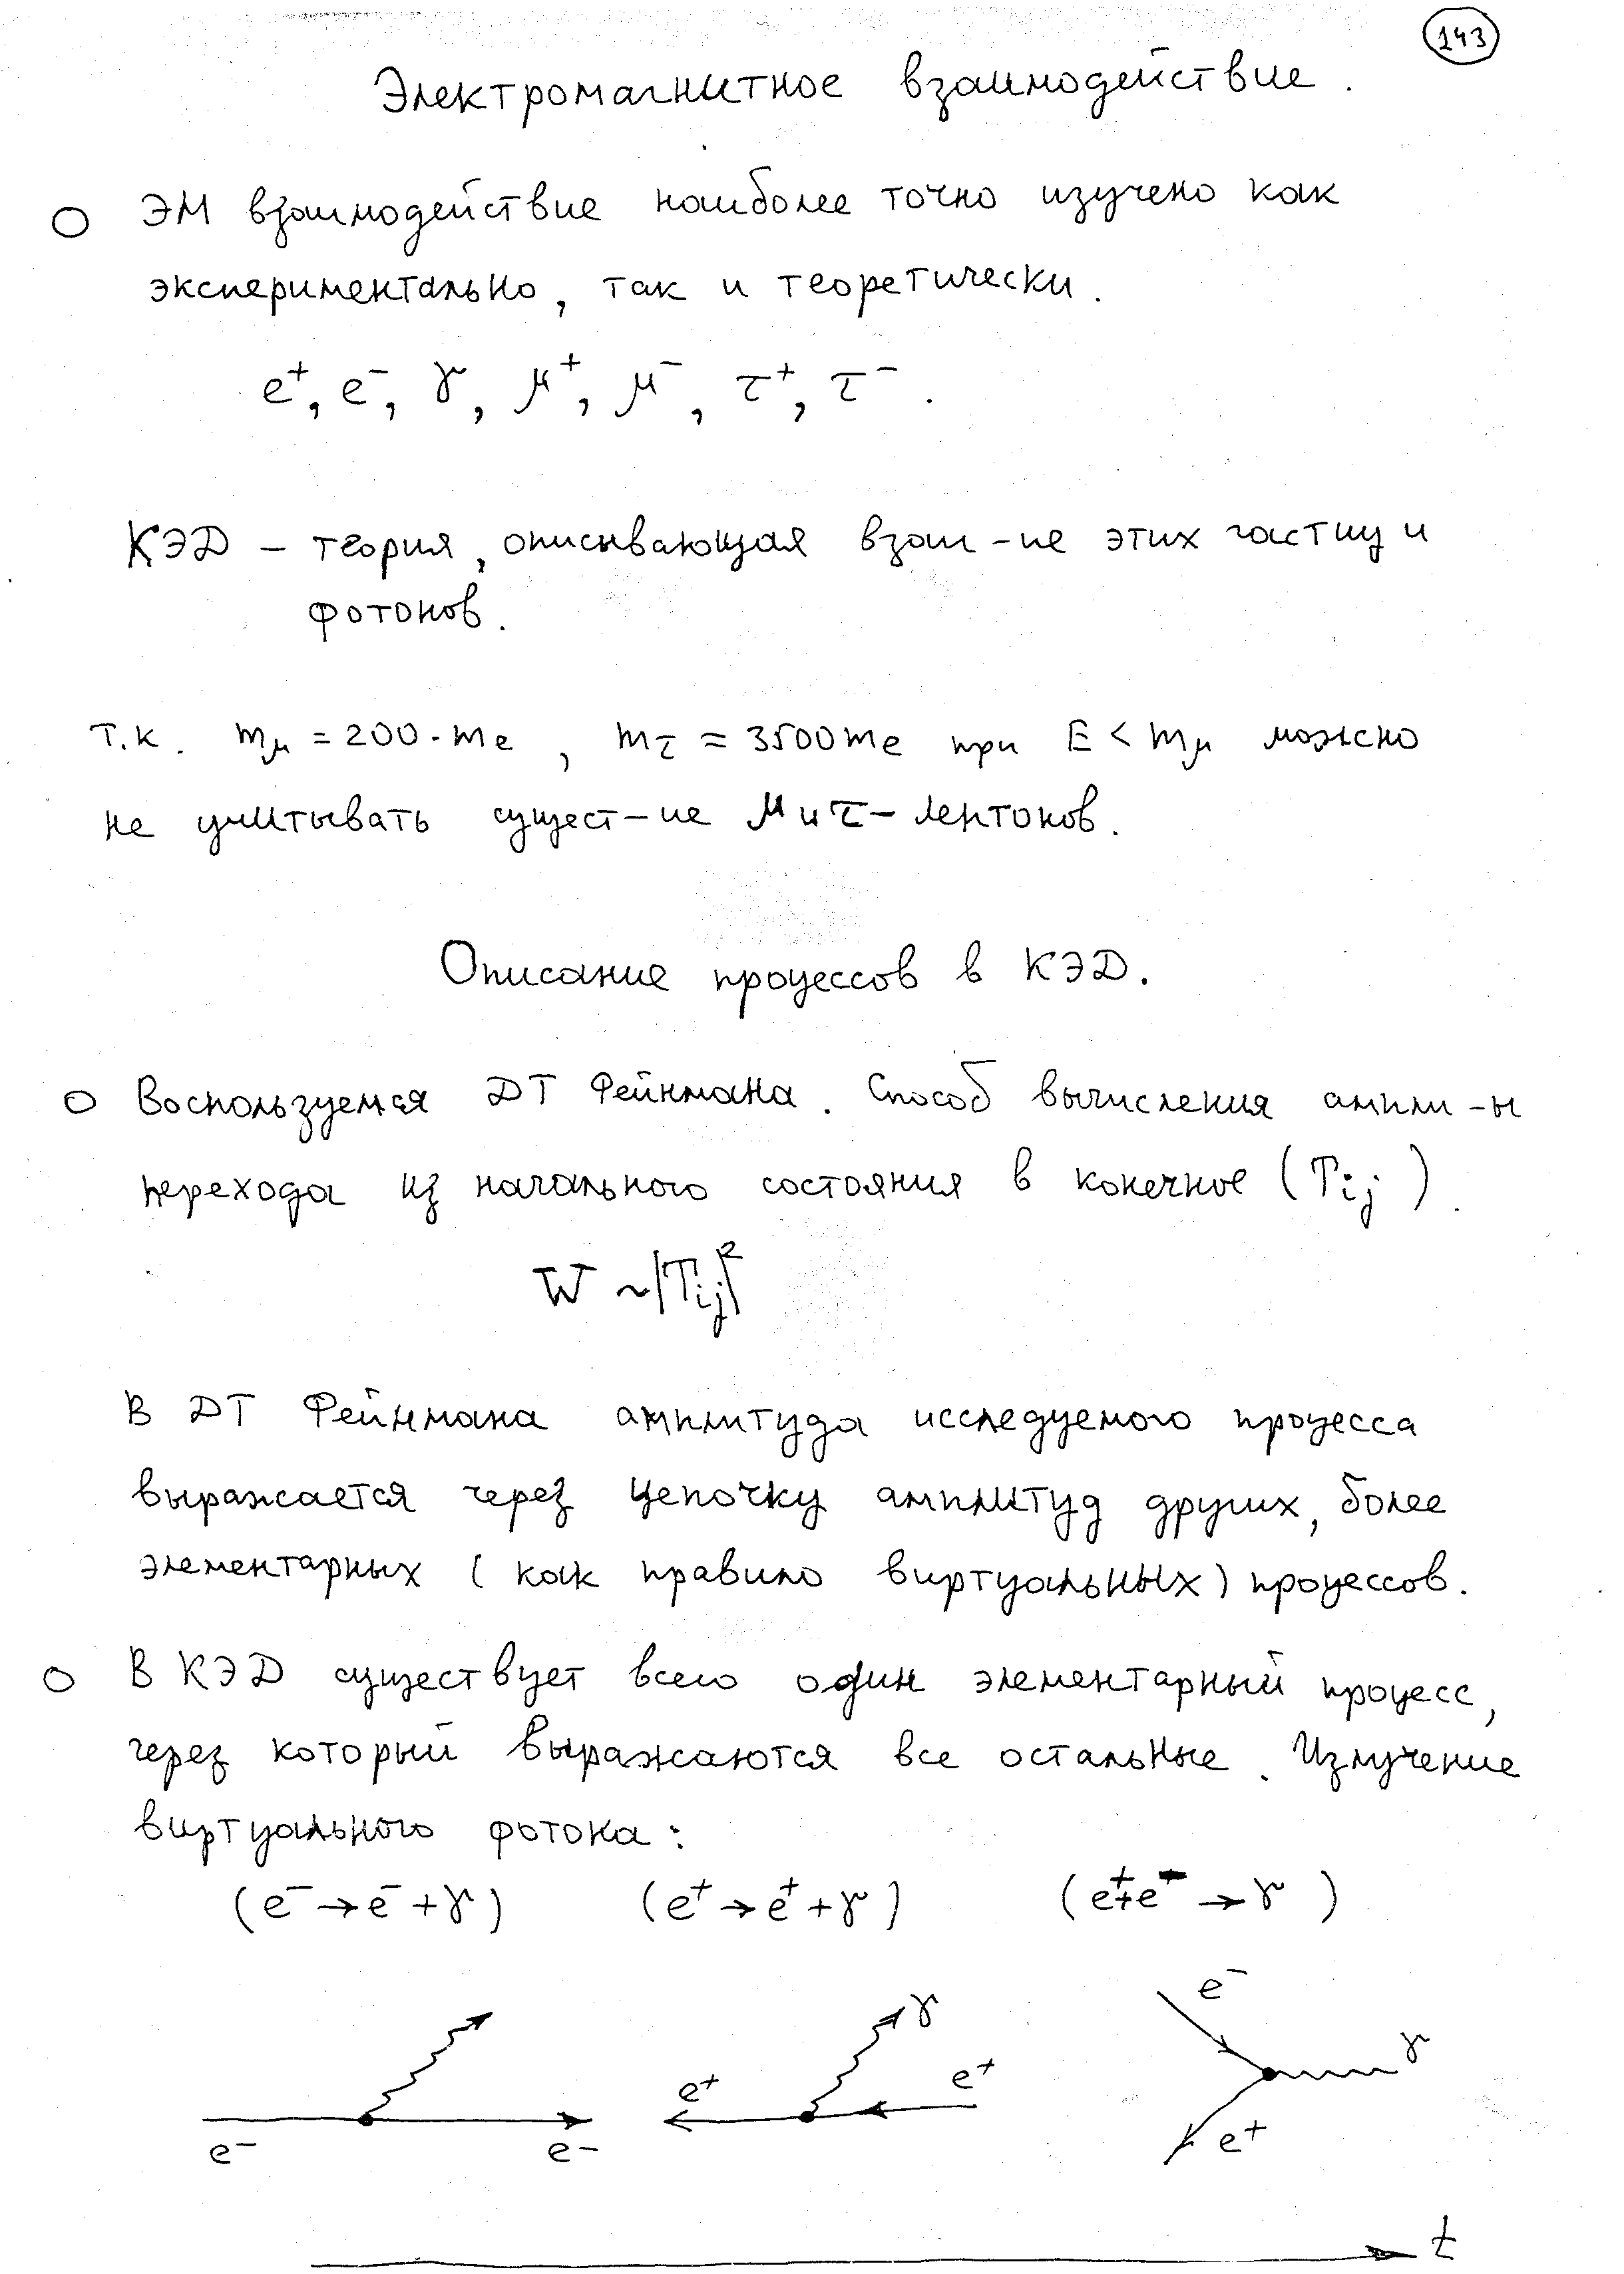 143
Электромагнитное взаимодействие.
ЭМ взаимодействие наиболее точно изучено как
экспериментально, так и теоретически.
e⁺, e⁻, γ, μ⁺, μ⁻, τ⁺, τ⁻.
КЭД – теория, описывающая взаи-ие этих частиц и
фотонов.
Т.к. mμ = 200·me, mτ ≈ 3500me при E < mμ можно
не учитывать сущест-ие μ и τ – лептонов.
Описание процессов в КЭД.
Воспользуемся ДТ Фейнмана. Способ вычисления ампли-ы
перехода из начального состояния в конечное (Tij).
W ~ |Tij|²
В ДТ Фейнмана амплитуда исследуемого процесса
выражается через цепочку амплитуд других, более
элементарных (как правило виртуальных) процессов.
В КЭД существует всего один элементарный процесс,
через который выражаются все остальные. Излучение
виртуального фотона:
(e⁻ → e⁻ + γ) (e⁺ → e⁺ + γ) (e⁺+e⁻ → γ)
e⁻ e⁻ e⁺ γ e⁺ e⁻ γ e⁺
t